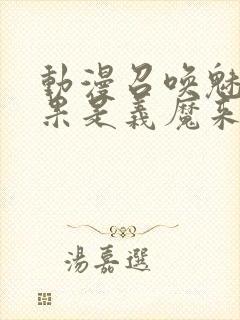 動漫召喚魅
果是義魔來
湯嘉選